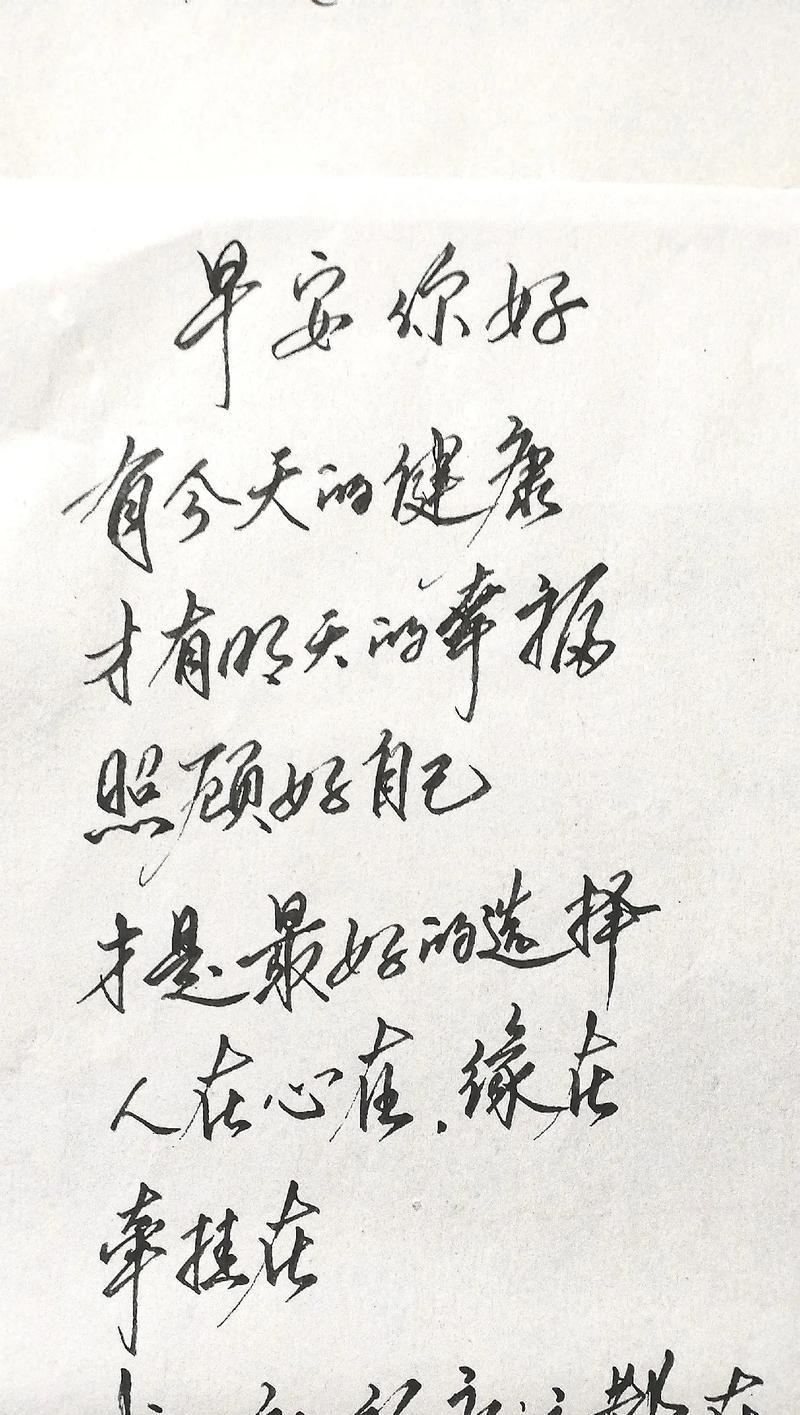 早安你好
有今天的健康
才有明天的幸福
照顾好自己
才是最好的选择
人在心在.缘在
牵挂在
都在